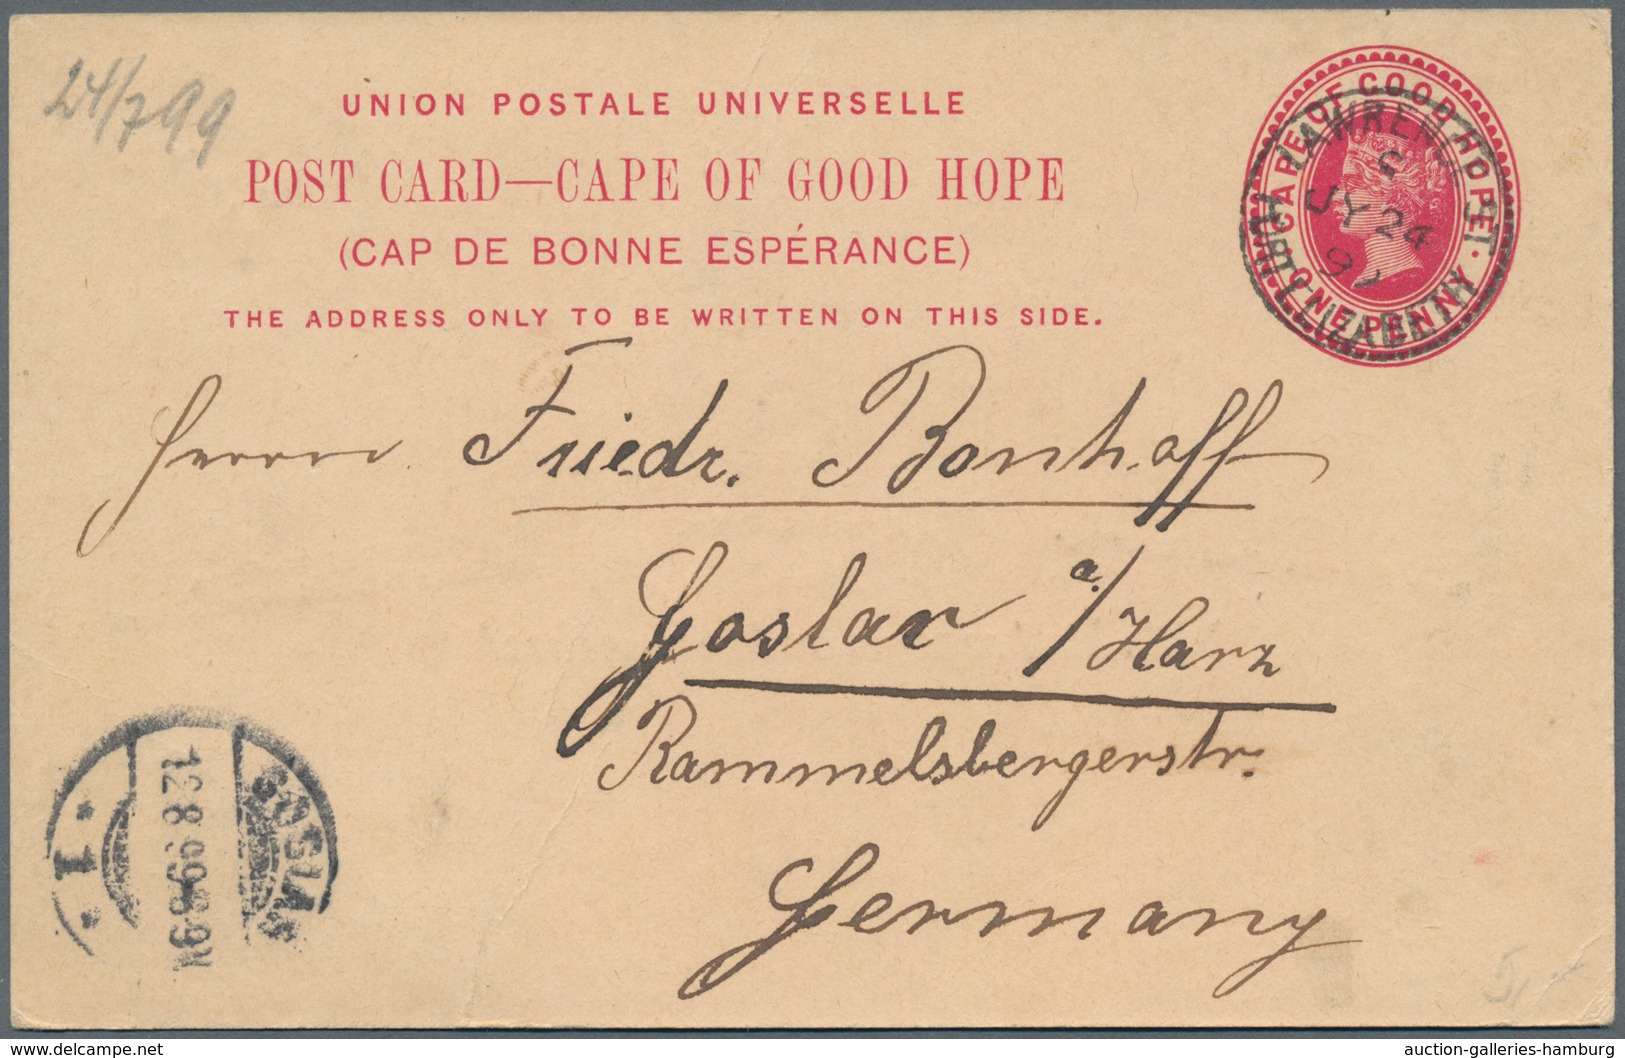 24/7 99
UNION POSTALE UNIVERSELLE
POST CARD—CAPE OF GOOD HOPE
(CAP DE BONNE ESPÉRANCE)
THE ADDRESS ONLY TO BE WRITTEN ON THIS SIDE.
CAPE OF GOOD HOPE
ONE PENNY
LAWRENCE ST.
JY 24
99
PORT ELIZABETH
Herrn Friedr. Bonhoff
Goslar a./Harz
Rammelsbergerstr.
Germany
GOSLAR
12.8.99
* 1 *
auction-galleries-hamburg
delcampe.net